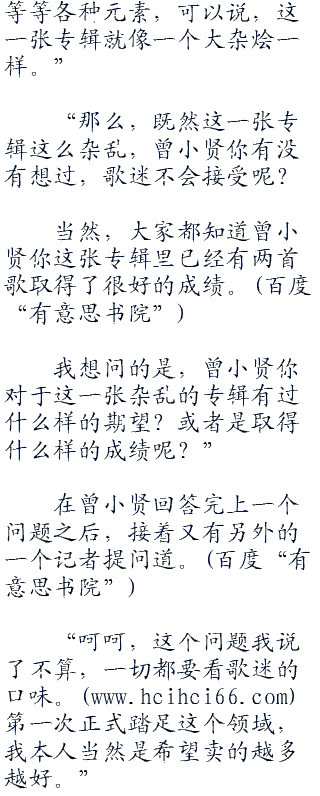 等等各种元素，可以说，这
一张专辑就像一个大杂烩一
样。”
“那么，既然这一张专
辑这么杂乱，曾小贤你有没
有想过，歌迷不会接受呢？
当然，大家都知道曾小
贤你这张专辑里已经有两首
歌取得了很好的成绩。(百度
“有意思书院”)
我想问的是，曾小贤你
对于这一张杂乱的专辑有过
什么样的期望？或者是取得
什么样的成绩呢？”
在曾小贤回答完上一个
问题之后，接着又有另外的
一个记者提问道。(百度“有
意思书院”)
“呵呵，这个问题我说
了不算，一切都要看歌迷的
口味。(www.hcihci66.com)
第一次正式踏足这个领域，
我本人当然是希望卖的越多
越好。”